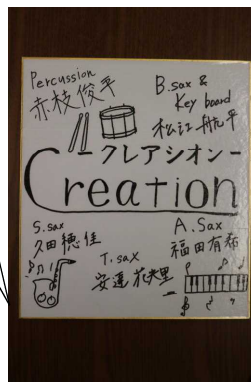 Percussion
赤枝俊平
B.sax &
Key board
松江航平
-クレアシオン-
Creation
S.sax
久田穂佳
T.sax
安蓮花央里
A.Sax
福田有祐